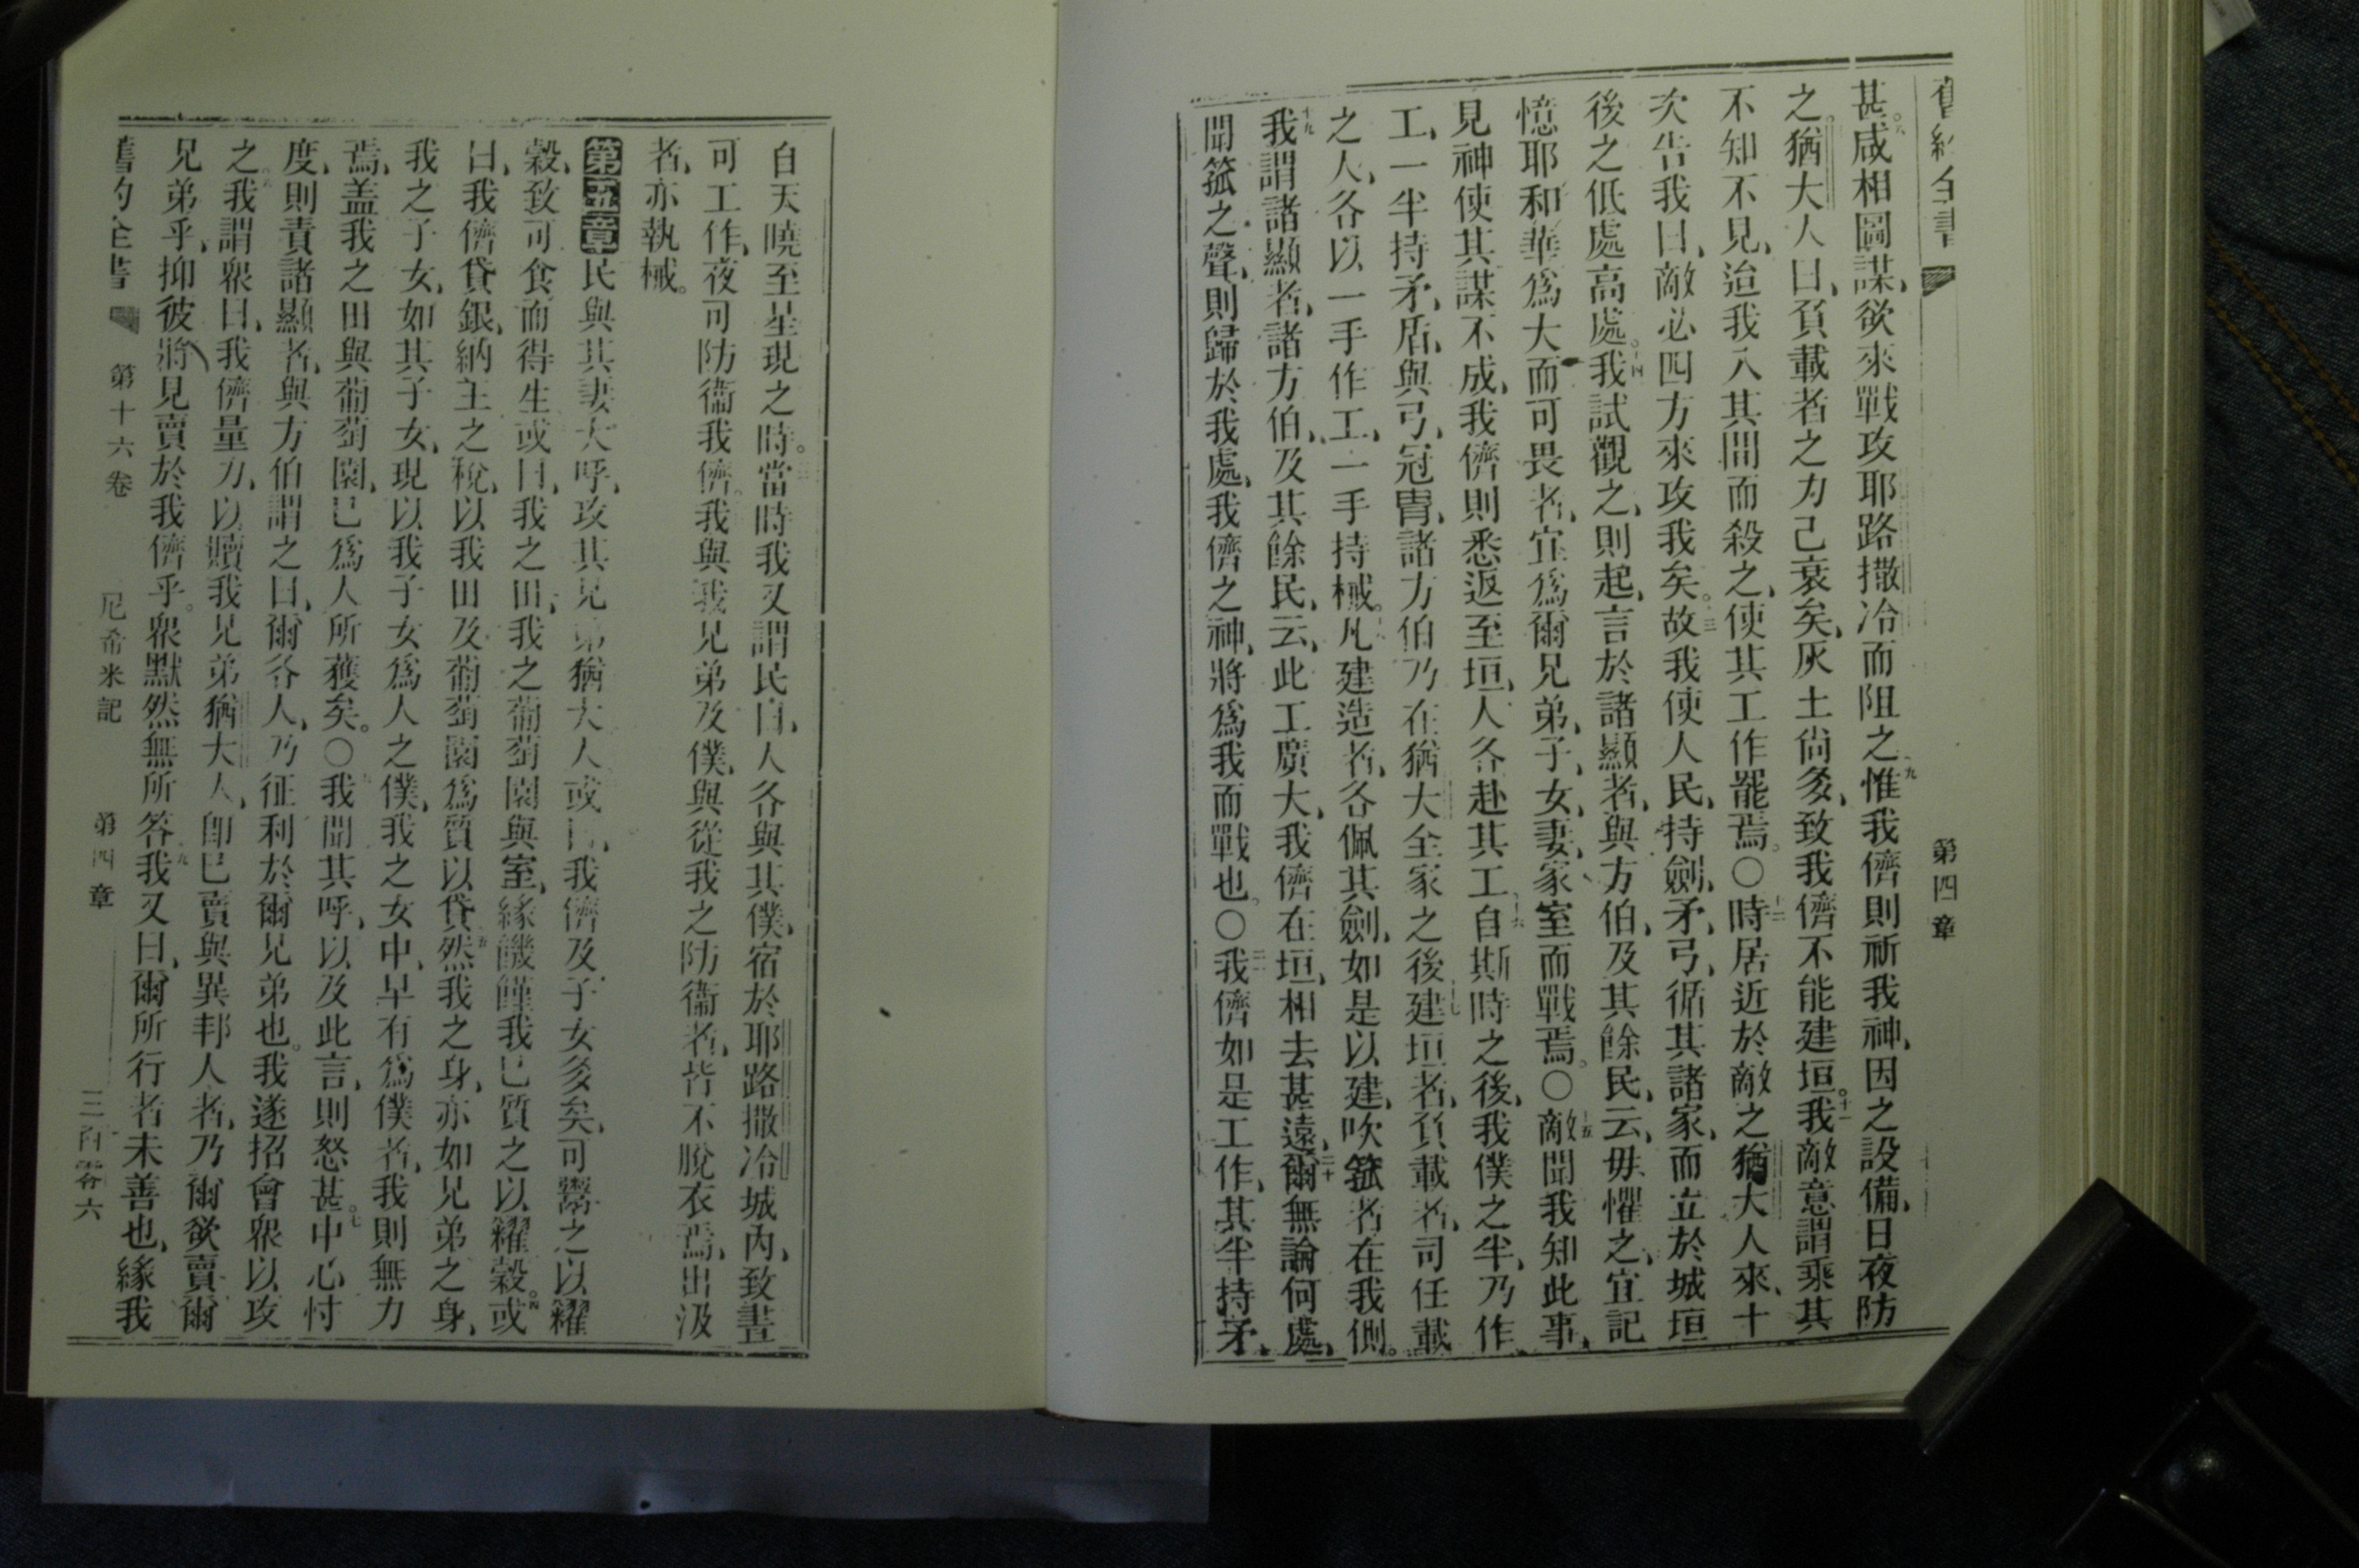 第四章
甚。八咸相圖謀、欲來戰攻耶路撒冷而阻之、九惟我儕則祈我神、因之設備、日夜防
之。猶大人曰、負載者之力己衰矣、灰土尚多、致我儕不能建垣。十一我敵意謂乘其
不知不見、迨我入其間而殺之、使其工作罷焉。〇十二時居近於敵之猶大人來、十
次告我曰、敵必四方來攻我矣。十三故我使人民、持劍、矛、弓、循其諸家、而立於城垣
後之低處高處。十四我試觀之、則起、言於諸顯者、與方伯、及其餘民、云、毋懼之、宜記
憶耶和華為大而可畏者、宜為爾兄弟、子、女、妻、家室而戰焉。〇十五敵聞我知此事、
見神使其謀不成、我儕則悉返至垣、人各赴其工、十六自斯時之後、我僕之半、乃作
工、一半持矛、盾、與弓、冠冑、諸方伯乃在猶大全家之後、十七建垣者、負載者、司任載
之人、各以一手作工、一手持械。十八凡建造者、各佩其劍、如是以建、吹箛者在我側。
十九我謂諸顯者、諸方伯、及其餘民、云、此工廣大、我儕在垣、相去甚遠、二十爾無論何處、
聞箛之聲、則歸於我處、我儕之神、將為我而戰也。〇二一我儕如是工作、其半持矛、
自天曉至星現之時。二二當時我又謂民曰、人各與其僕、宿於耶路撒冷城內、致晝
可工作、夜可防衞我儕。我與我兄弟及僕、與從我之防衞者、皆不脫衣焉、出汲
者、亦執械。
第五章民與其妻大呼、攻其兄弟猶大人、或曰、我儕及子女多矣、可鬻之以糴
穀、致可食而得生、或曰、我之田、我之葡萄園與室、緣饑饉我已質之以糴穀。四或
曰、我儕貸銀、納主之稅、以我田及葡萄園為質以貸、五然我之身、亦如兄弟之身、
我之子女、如其子女、現以我子女為人之僕、我之女中、早有為僕者、我則無力
焉、盖我之田與葡萄園、已為人所獲矣。〇六我聞其呼、以及此言、則怒甚。七中心忖
度、則責諸顯者、與方伯謂之曰、爾各人、乃征利於爾兄弟也。我遂招會眾以攻
之、八我謂眾曰、我儕量力、以贖我兄弟猶大人、卽已賣與異邦人者、乃爾欲賣爾
兄弟乎、抑彼將見賣於我儕乎。眾默然無所答、九我又曰、爾所行者未善也、緣我
舊約全書 第十六卷 尼希米記 第四章 三百零六